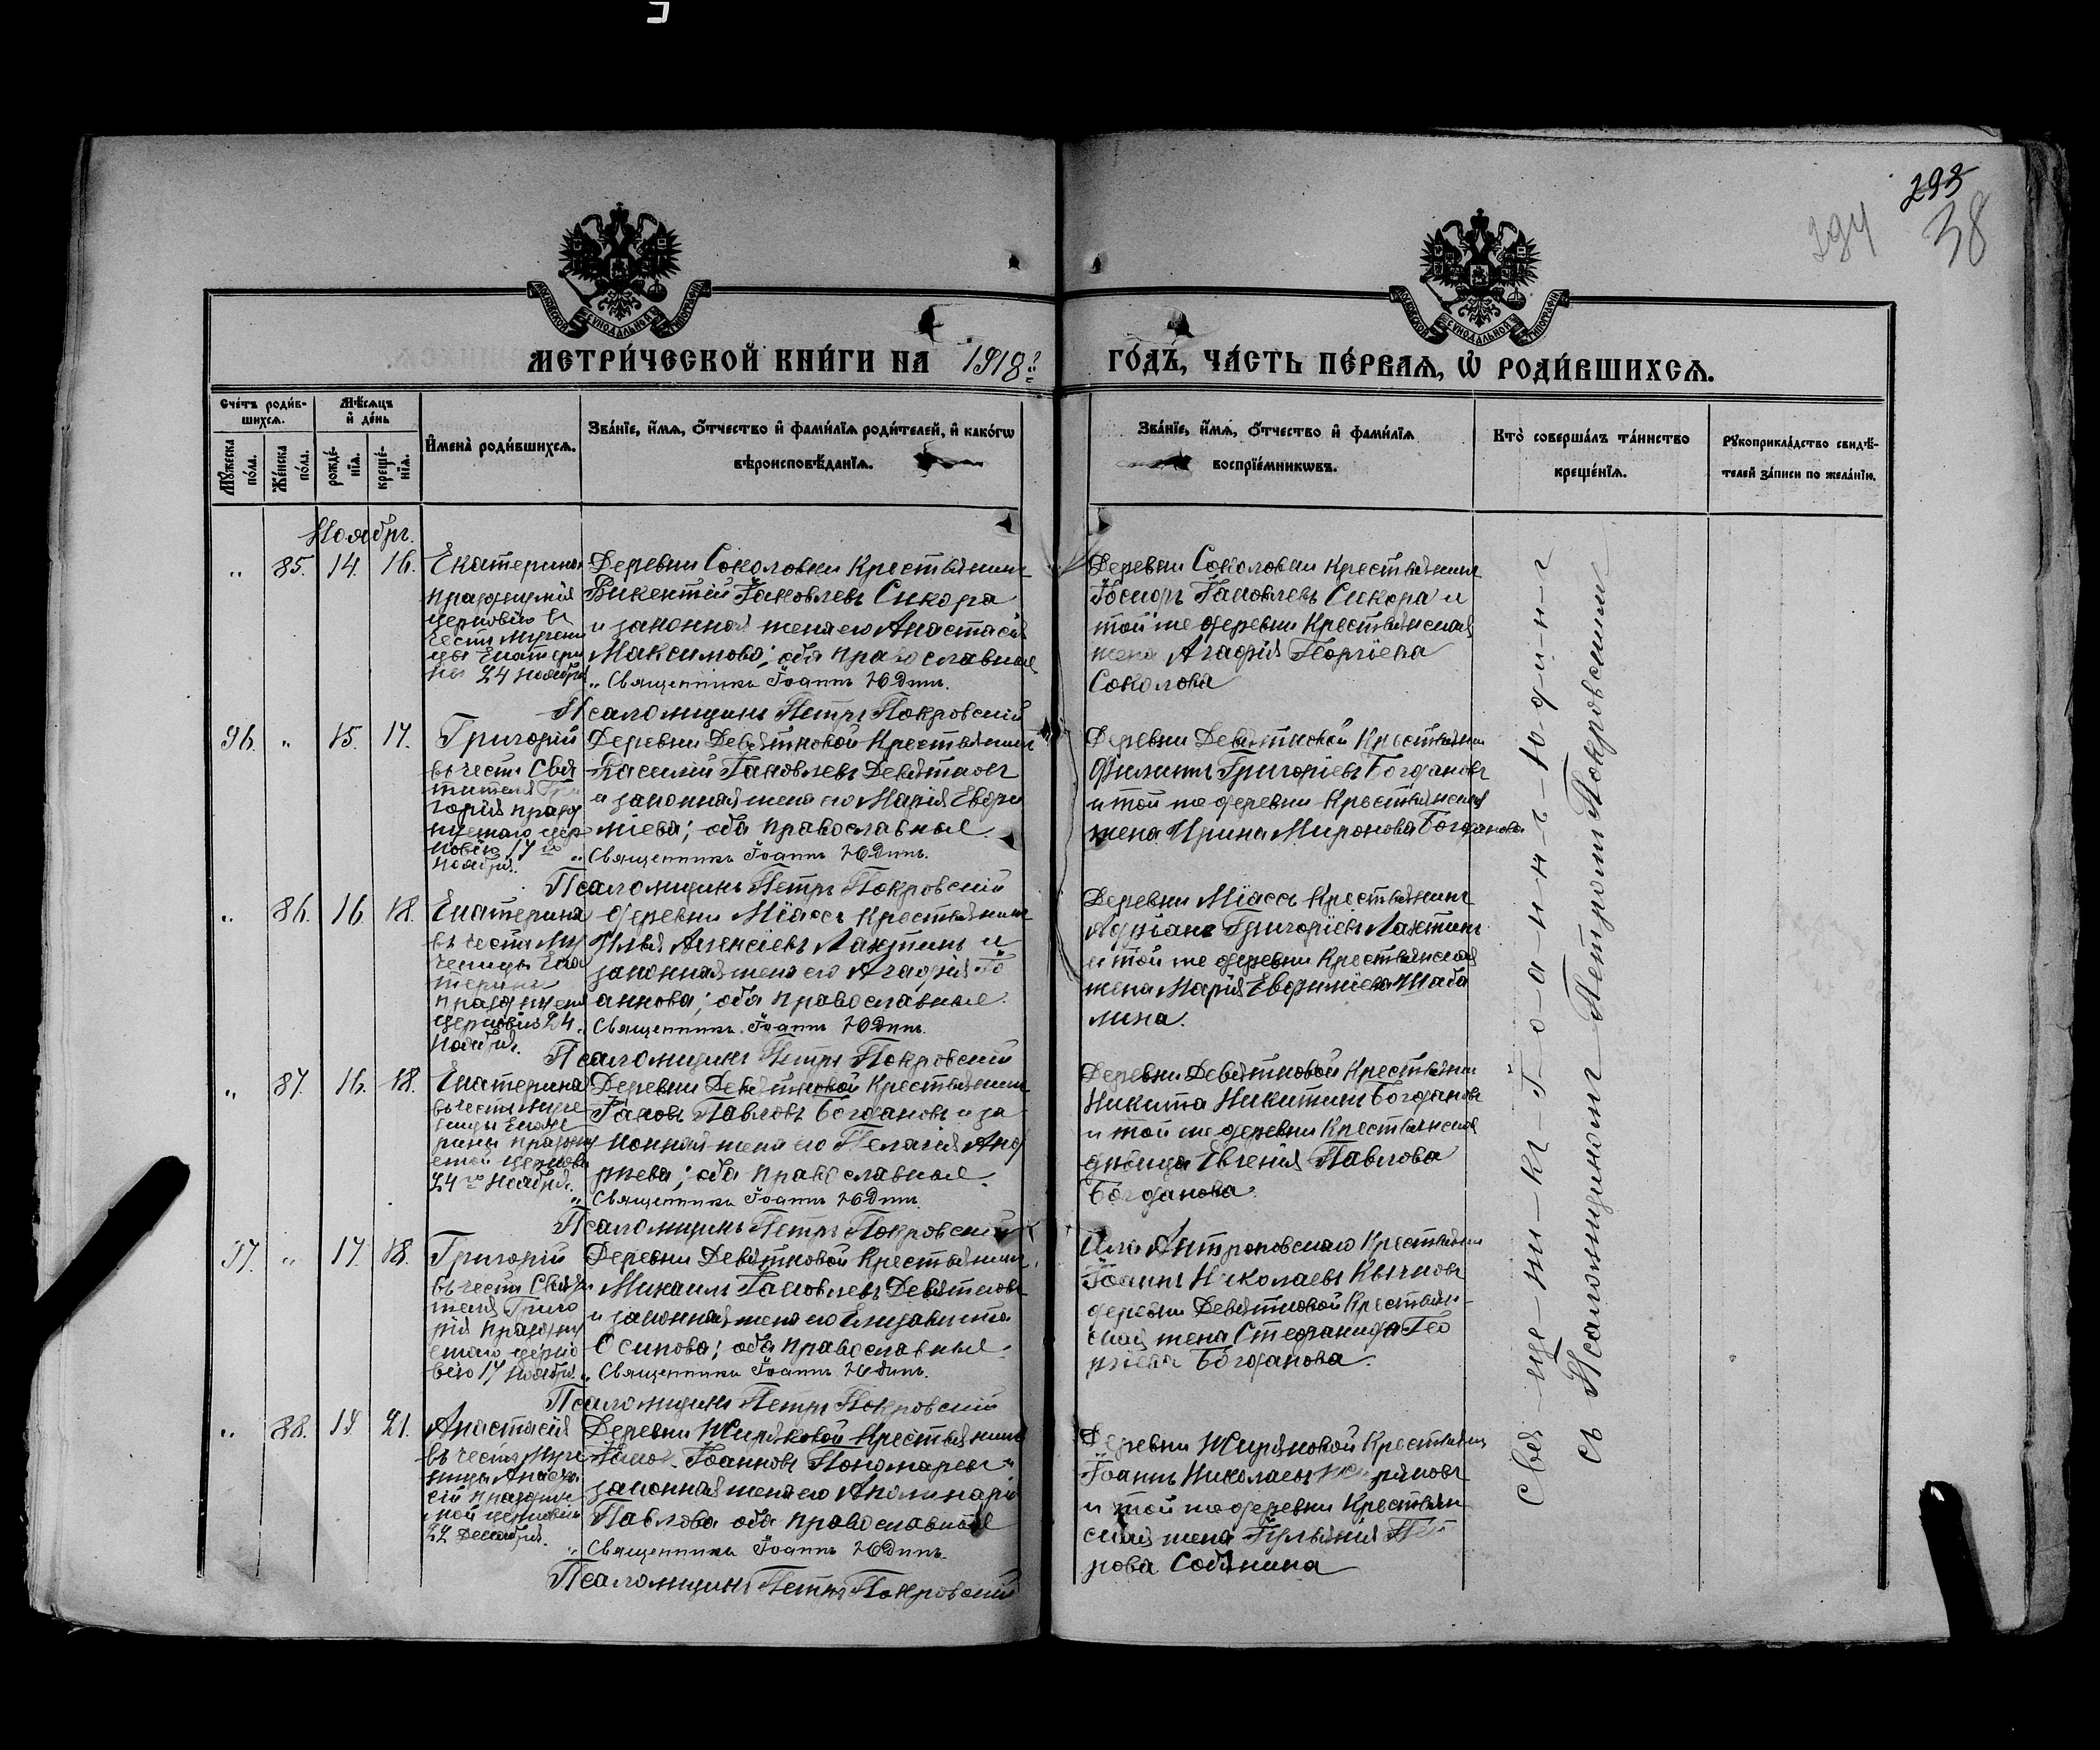 293
294
38
МОСКОВСКОЙ СѴНОДАЛЬНОЙ ТИПОГРАФІИ
МОСКОВСКОЙ СѴНОДАЛЬНОЙ ТИПОГРАФІИ
МЕТРИ́ЧЕСКОЙ КНИ́ГИ НА 1918 г.
ГО́ДЪ, ЧА́СТЬ ПЕ́РВАѦ, Ѡ РОДИ́ВШИХСѦ.
Сче́тъ роди́в-
шихсѧ.
Му́жеска по́ла.
Же́нска по́ла.
Мѣ́сѧцъ
и де́нь
рожде́-
нїѧ.
креще́-
нїѧ.
Имена̀ роди́вшихсѧ.
Зва́нїе, и́мѧ, о́тчество и фами́лїѧ роди́телей, и како́гѡ
вѣроисповѣ́данїѧ.
Зва́нїе, и́мѧ, о́тчество и фами́лїѧ
воспрїе́мникѡвъ.
Кто̀ соверша́лъ та́инство
креще́нїѧ.
Рꙋкоприкла́дство свидѣ́-
телей за́писи по жела́нїю.
Ноября.
„ 85. 14. 16.
Екатерина
празднуемыя
церковію въ
честь мучени
цы Екатери
ны 24 Ноября
Деревни Соколовки Крестьянинъ
Викентій Іаковлевъ Сикора
и законная жена его Анастасія
Максимова; оба православные
„ Священникъ Іоаннъ Юдинъ.
Псаломщикъ Петръ Покровскій
Деревни Соколовки Крестьянинъ
Іосифъ Іаковлевъ Сикора и
той же деревни Крестьянская
жена Агафія Георгіева
Соколова
96. „ 15. 17.
Григорій
въ честь Свя
тителя Гри
горія праздн
уемаго цер
ковію 17 го
Ноября.
Деревни Девятковой Крестьянинъ
Василій Іаковлевъ Девятковъ
и законная жена его Марія Евфи
міева; оба православные
„ Священникъ Іоаннъ Юдинъ.
Псаломщикъ Петръ Покровскій
Деревни Девятковой Крестьянинъ
Филиппъ Григоріевъ Богдановъ
и той же деревни Крестьянская
жена Ирина Миронова Богданова
„ 86. 16. 18.
Екатерина
въ честь Му
ченицы Ека
терины
празднуемой
церковію 24
Ноября.
деревни Міассъ Крестьянинъ
Илья Алексіевъ Лахтинъ и
законная жена его Агафія Іо
аннова; оба православные.
„ Священникъ Іоаннъ Юдинъ.
Псаломщикъ Петръ Покровскій
Деревни Міассъ Крестьянинъ
Адріанъ Григоріевъ Лахтинъ
и той же деревни Крестьянская
жена Марія Евфиміева Шаба
лина.
„ 87. 16. 18.
Екатерина
въ честь муче
ницы Екате
рины праздну
емой церковію
24 го Ноября.
Деревни Девятковой Крестьянинъ
Іаковъ Павловъ Богдановъ и за
конная жена его Пелагія Анд
реева; оба православные.
„ Священникъ Іоаннъ Юдинъ.
Псаломщикъ Петръ Покровскій
Деревни Девятковой Крестьянинъ
Никита Никитинъ Богдановъ
и той же деревни Крестьянская
дѣвица Евгенія Павлова
Богданова.
97. „ 17. 18.
Григорій
въ честь Святи
теля Григо
рія праздну
емаго церко
вію 17 Ноября.
Деревни Девятковой Крестьянинъ
Михаилъ Іаковлевъ Девятковъ
и законная жена его Елизавета
Осипова; оба православные.
„ Священникъ Іоаннъ Юдинъ.
Псаломщикъ Петръ Покровскій
Села Антроповскаго Крестьянинъ
Іоаннъ Николаевъ
деревни Девятковой Крестьян-
ская жена Стефанида Гео
ргіева Богданова.
„ 88. 19. 21.
Анастасія
въ честь муче
ницы Анаста
сіи праздну
емой церковію
22 Декабря.
Деревни Жиряковой Крестьянинъ
Іоанновъ Пономаревъ и
законная жена его Аполинарія
Павлова оба православные
„ Священникъ Іоаннъ Юдинъ.
Псаломщикъ Петръ Покровскій
Деревни Жиряковой Крестьянинъ
Іоаннъ Николаевъ Жиряковъ
и той же деревни Крестьян
ская жена Іуліанія Пет
рова Собянина
Свя-ще-ни-къ-І-о-а-н-н-ъ-Ю-д-и-н-ъ
съ Псаломщикомъ Петромъ Покровскимъ